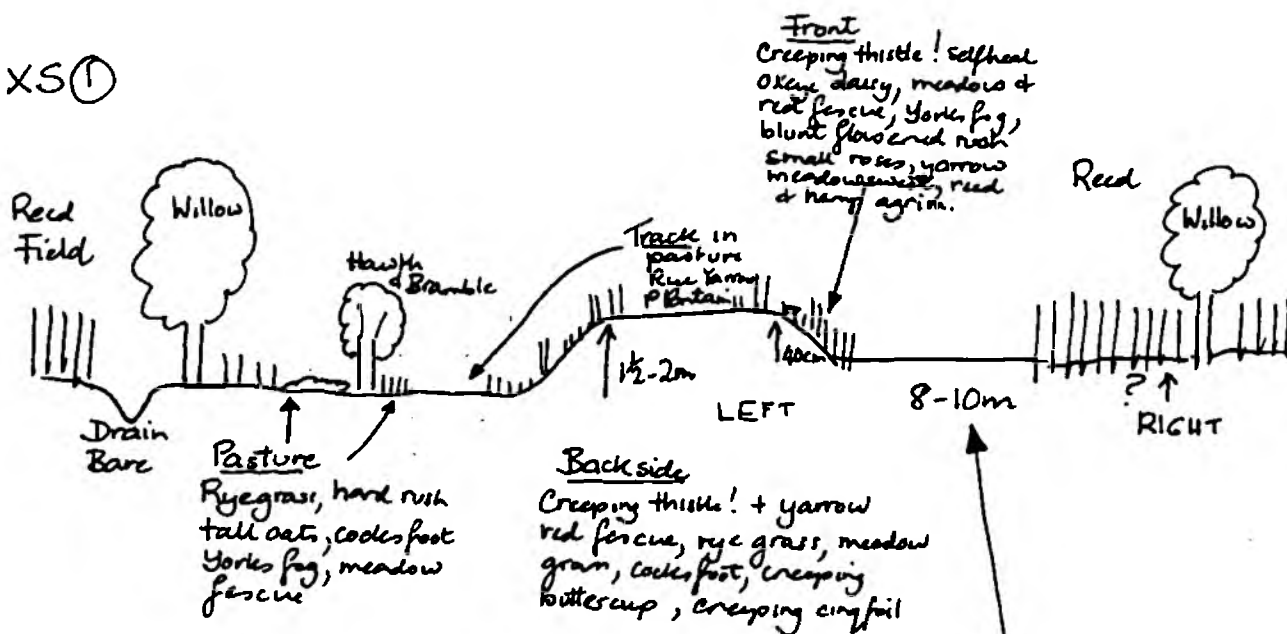 XS ①
Front
Creeping thistle! Selfheal
Oxeye daisy, meadow &
red fescue, Yorks fog,
blunt flowered rush
small roses, yarrow
meadowsweet, reed
& hemp agrim.
Reed
Field
Willow
Hawth
& Bramble
Track in
pasture
Rye Yarrow
P Plantain
Reed
Willow
Drain
Bare
1½-2m
40cm
LEFT
8-10m
?
RIGHT
Pasture
Ryegrass, hard rush
tall oats, cocksfoot
Yorks fog, meadow
fescue
Back side
Creeping thistle! + yarrow
red fescue, rye grass, meadow
grass, cocksfoot, creeping
buttercup, creeping cinqfoil